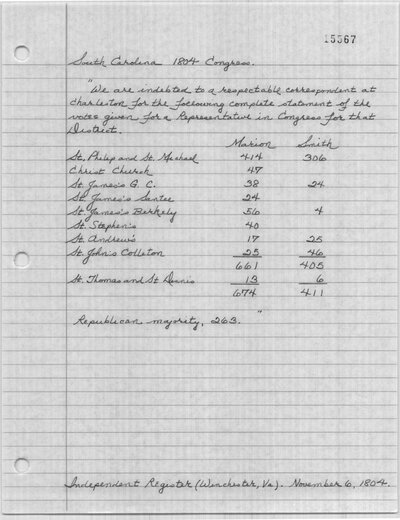 15567
South Carolina 1804 Congress.
"We are indebted to a respectable correspondent at
Charleston for the following complete statement of the
votes given for a Representative in Congress for that
District.
Marion Smith
St. Philip and St. Michael 414 306
Christ Church 47
St. James's G. C. 38 24
St. James's Santee 24
St. James's Berkely 56 4
St. Stephen's 40
St. Andrew's 17 25
St. John's Colleton 25 46
661 405
St. Thomas and St Dennis 13 6
674 411
Republican majority, 263."
Independent Register (Winchester, Va). November 6, 1804.